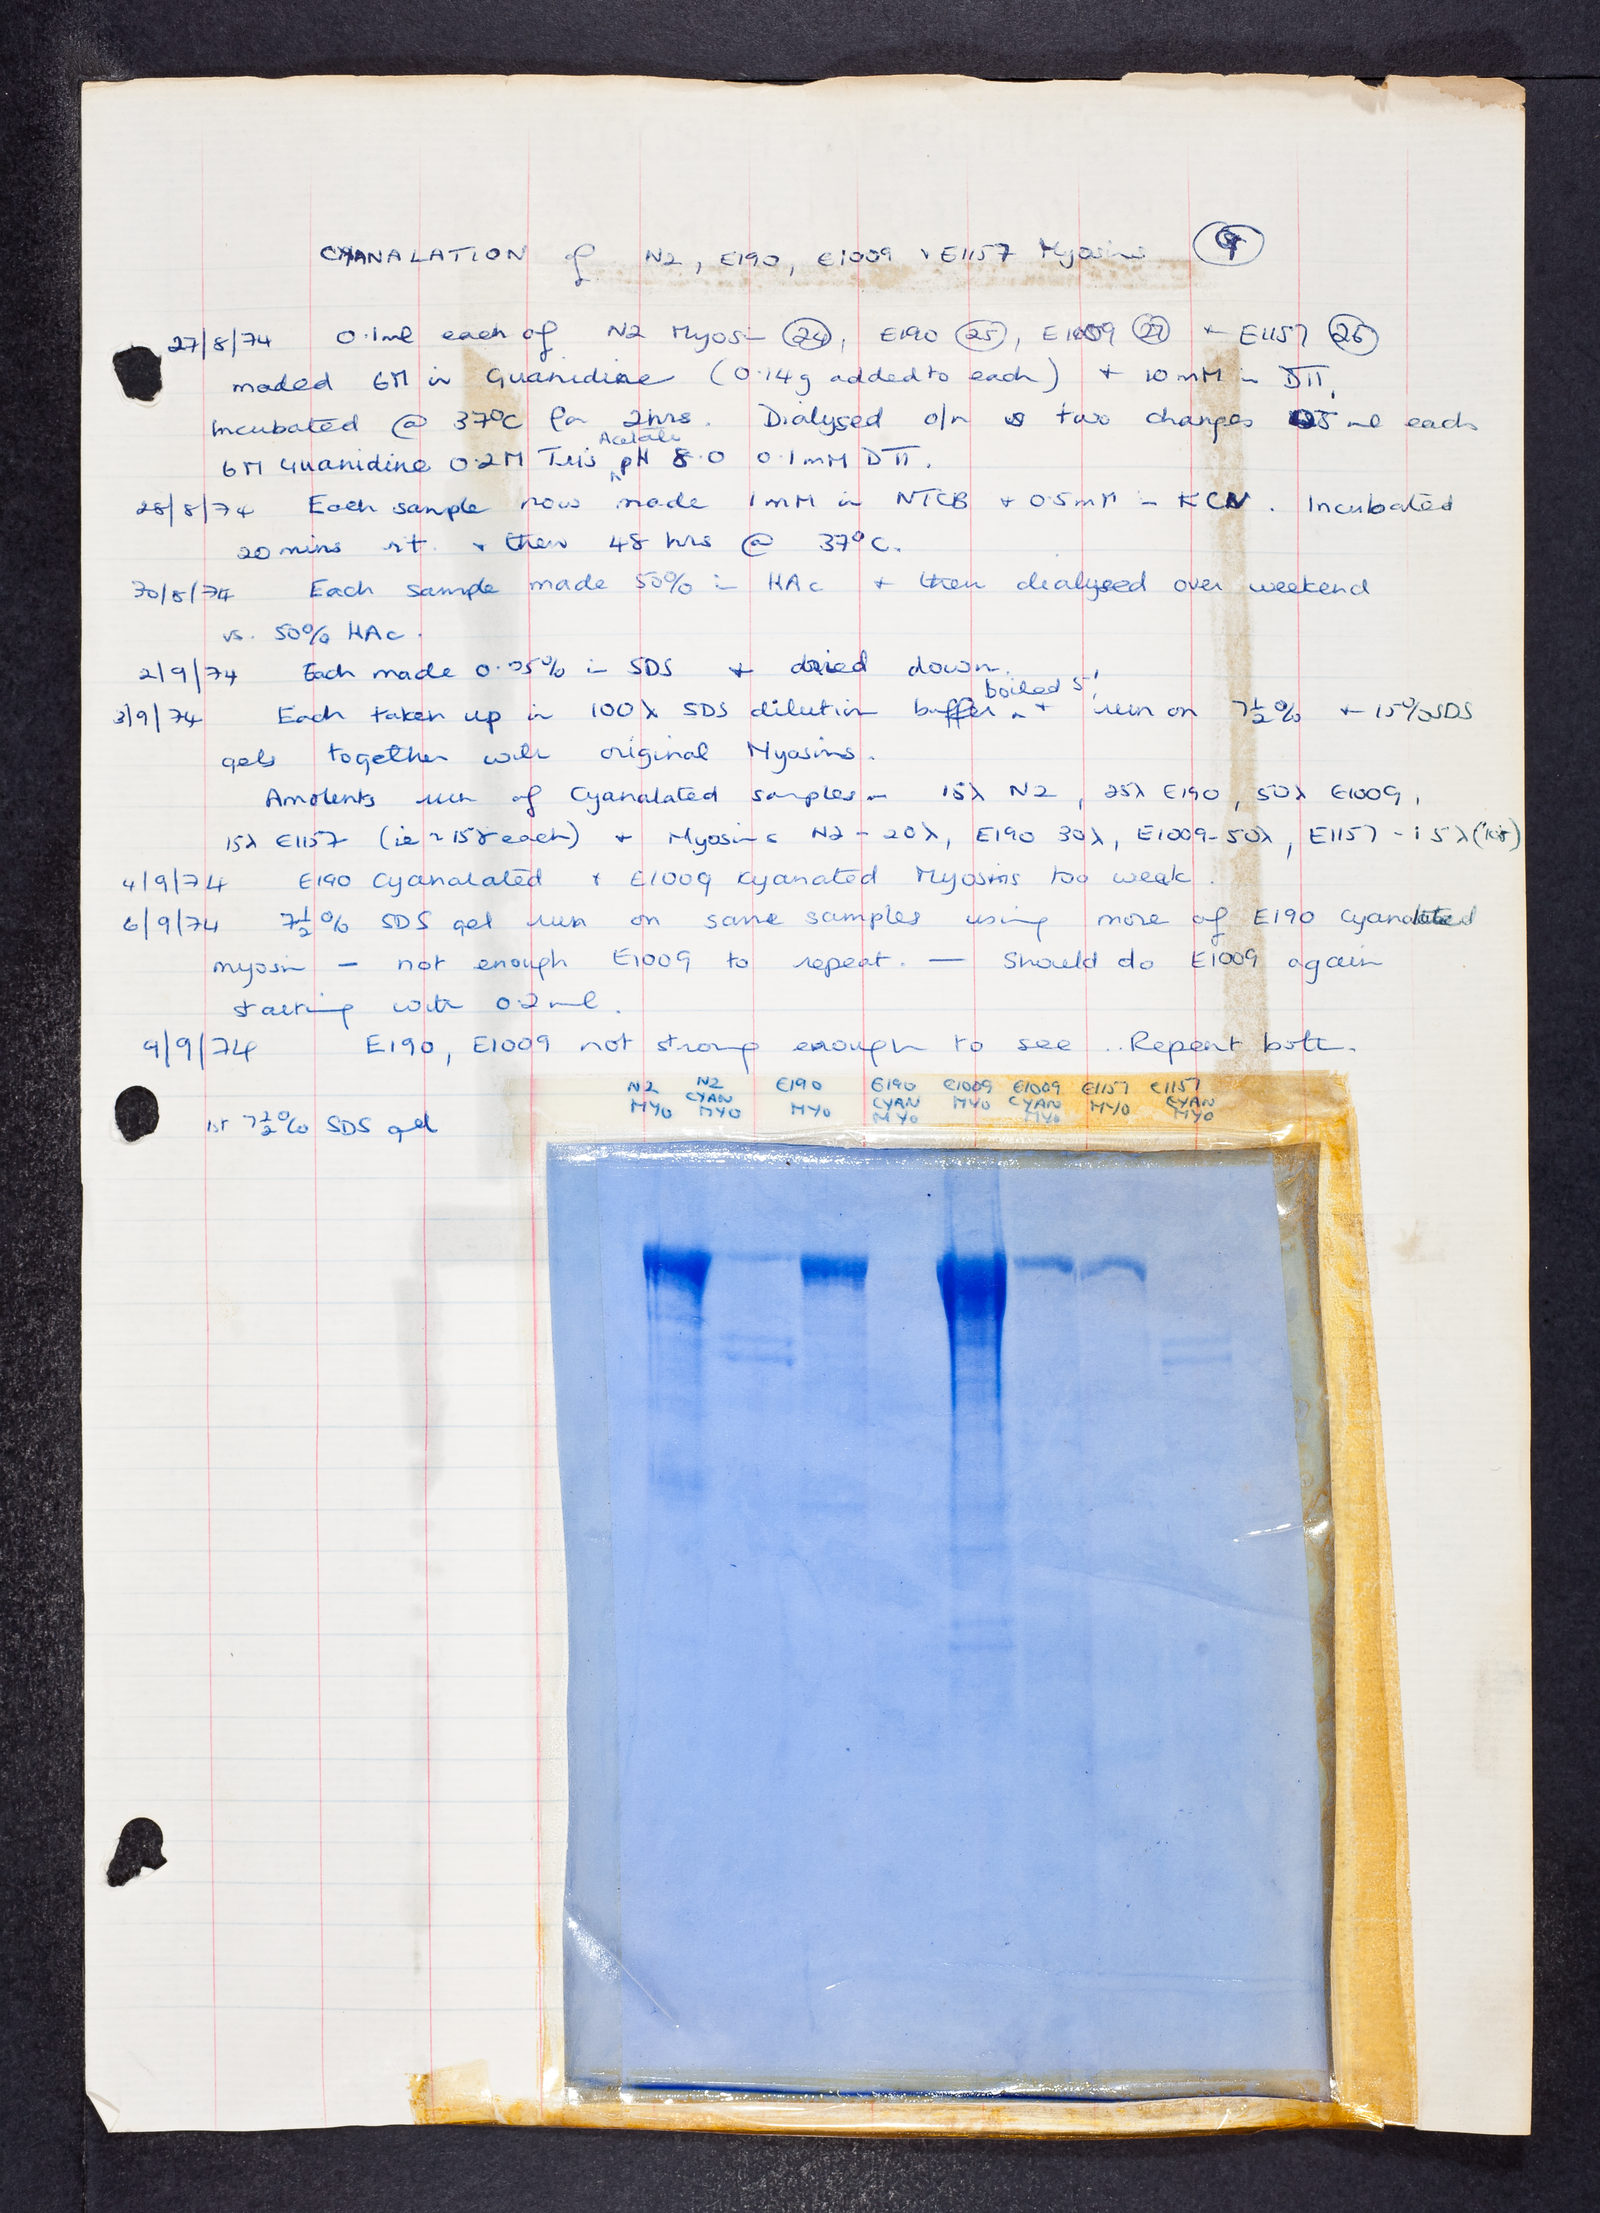 CYANALATION of N2, E190, E1009 + E1157 Myosins
27/8/74 0.1ml each of N2 Myosin (24), E190 (25), E1009 (27) + E1157 (26)
maded 6M in Guanidine (0.14g added to each) + 10mM in DTT,
Incubated @ 37°C for 2hrs. Dialysed o/n vs two changes 25 ml each
6M Guanidine 0.2M Tris Acetate pH 8.0 0.1mM DTT.
28/8/74 Each sample now made 1mM in NTCB + 0.5mM in KCN. Incubated
20 mins r.t. + then 48 hrs @ 37°C.
30/8/74 Each sample made 50% in HAc + then dialysed over weekend
vs. 50% HAc.
2/9/74 Each made 0.05% in SDS + dried down.
3/9/74 Each taken up in 100λ SDS dilution buffer boiled 5' + run on 7½% + 15% SDS
gels together with original Myosins.
Amounts run of Cyanalated samples - 15λ N2, 25λ E190, 50λ E1009,
15λ E1157 (ie ~ 15γ each) + Myosins N2 - 20λ, E190 30λ, E1009 - 50λ, E1157 - 15λ
4/9/74 E190 Cyanalated + E1009 Cyanated Myosins too weak.
6/9/74 7½% SDS gel run on same samples using more of E190 Cyanalated
myosin - not enough E1009 to repeat. - Should do E1009 again
starting with 0.2ml.
9/9/74 E190, E1009 not strong enough to see .. Repeat both.
N2 MYO
N2 CYAN MYO
E190 MYO
E190 CYAN MYO
E1009 MYO
E1009 CYAN MYO
E1157 MYO
E1157 CYAN MYO
1st 7½% SDS gel